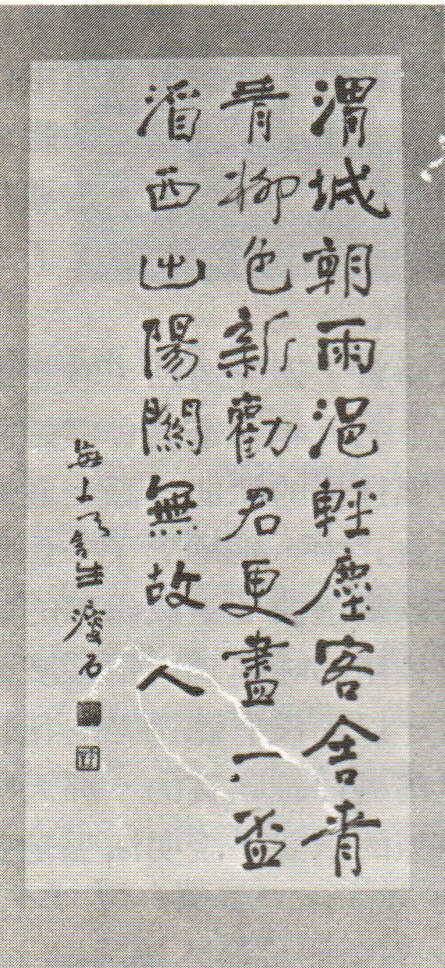 渭城朝雨浥輕塵客舍青
青柳色新勸君更盡一盃
酒西出陽關無故人
海上瘦石